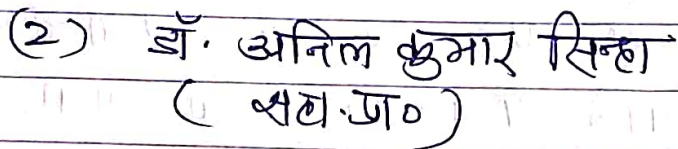 (2) डॉ. अनिल कुमार सिन्हा
( सहा. प्रा० )